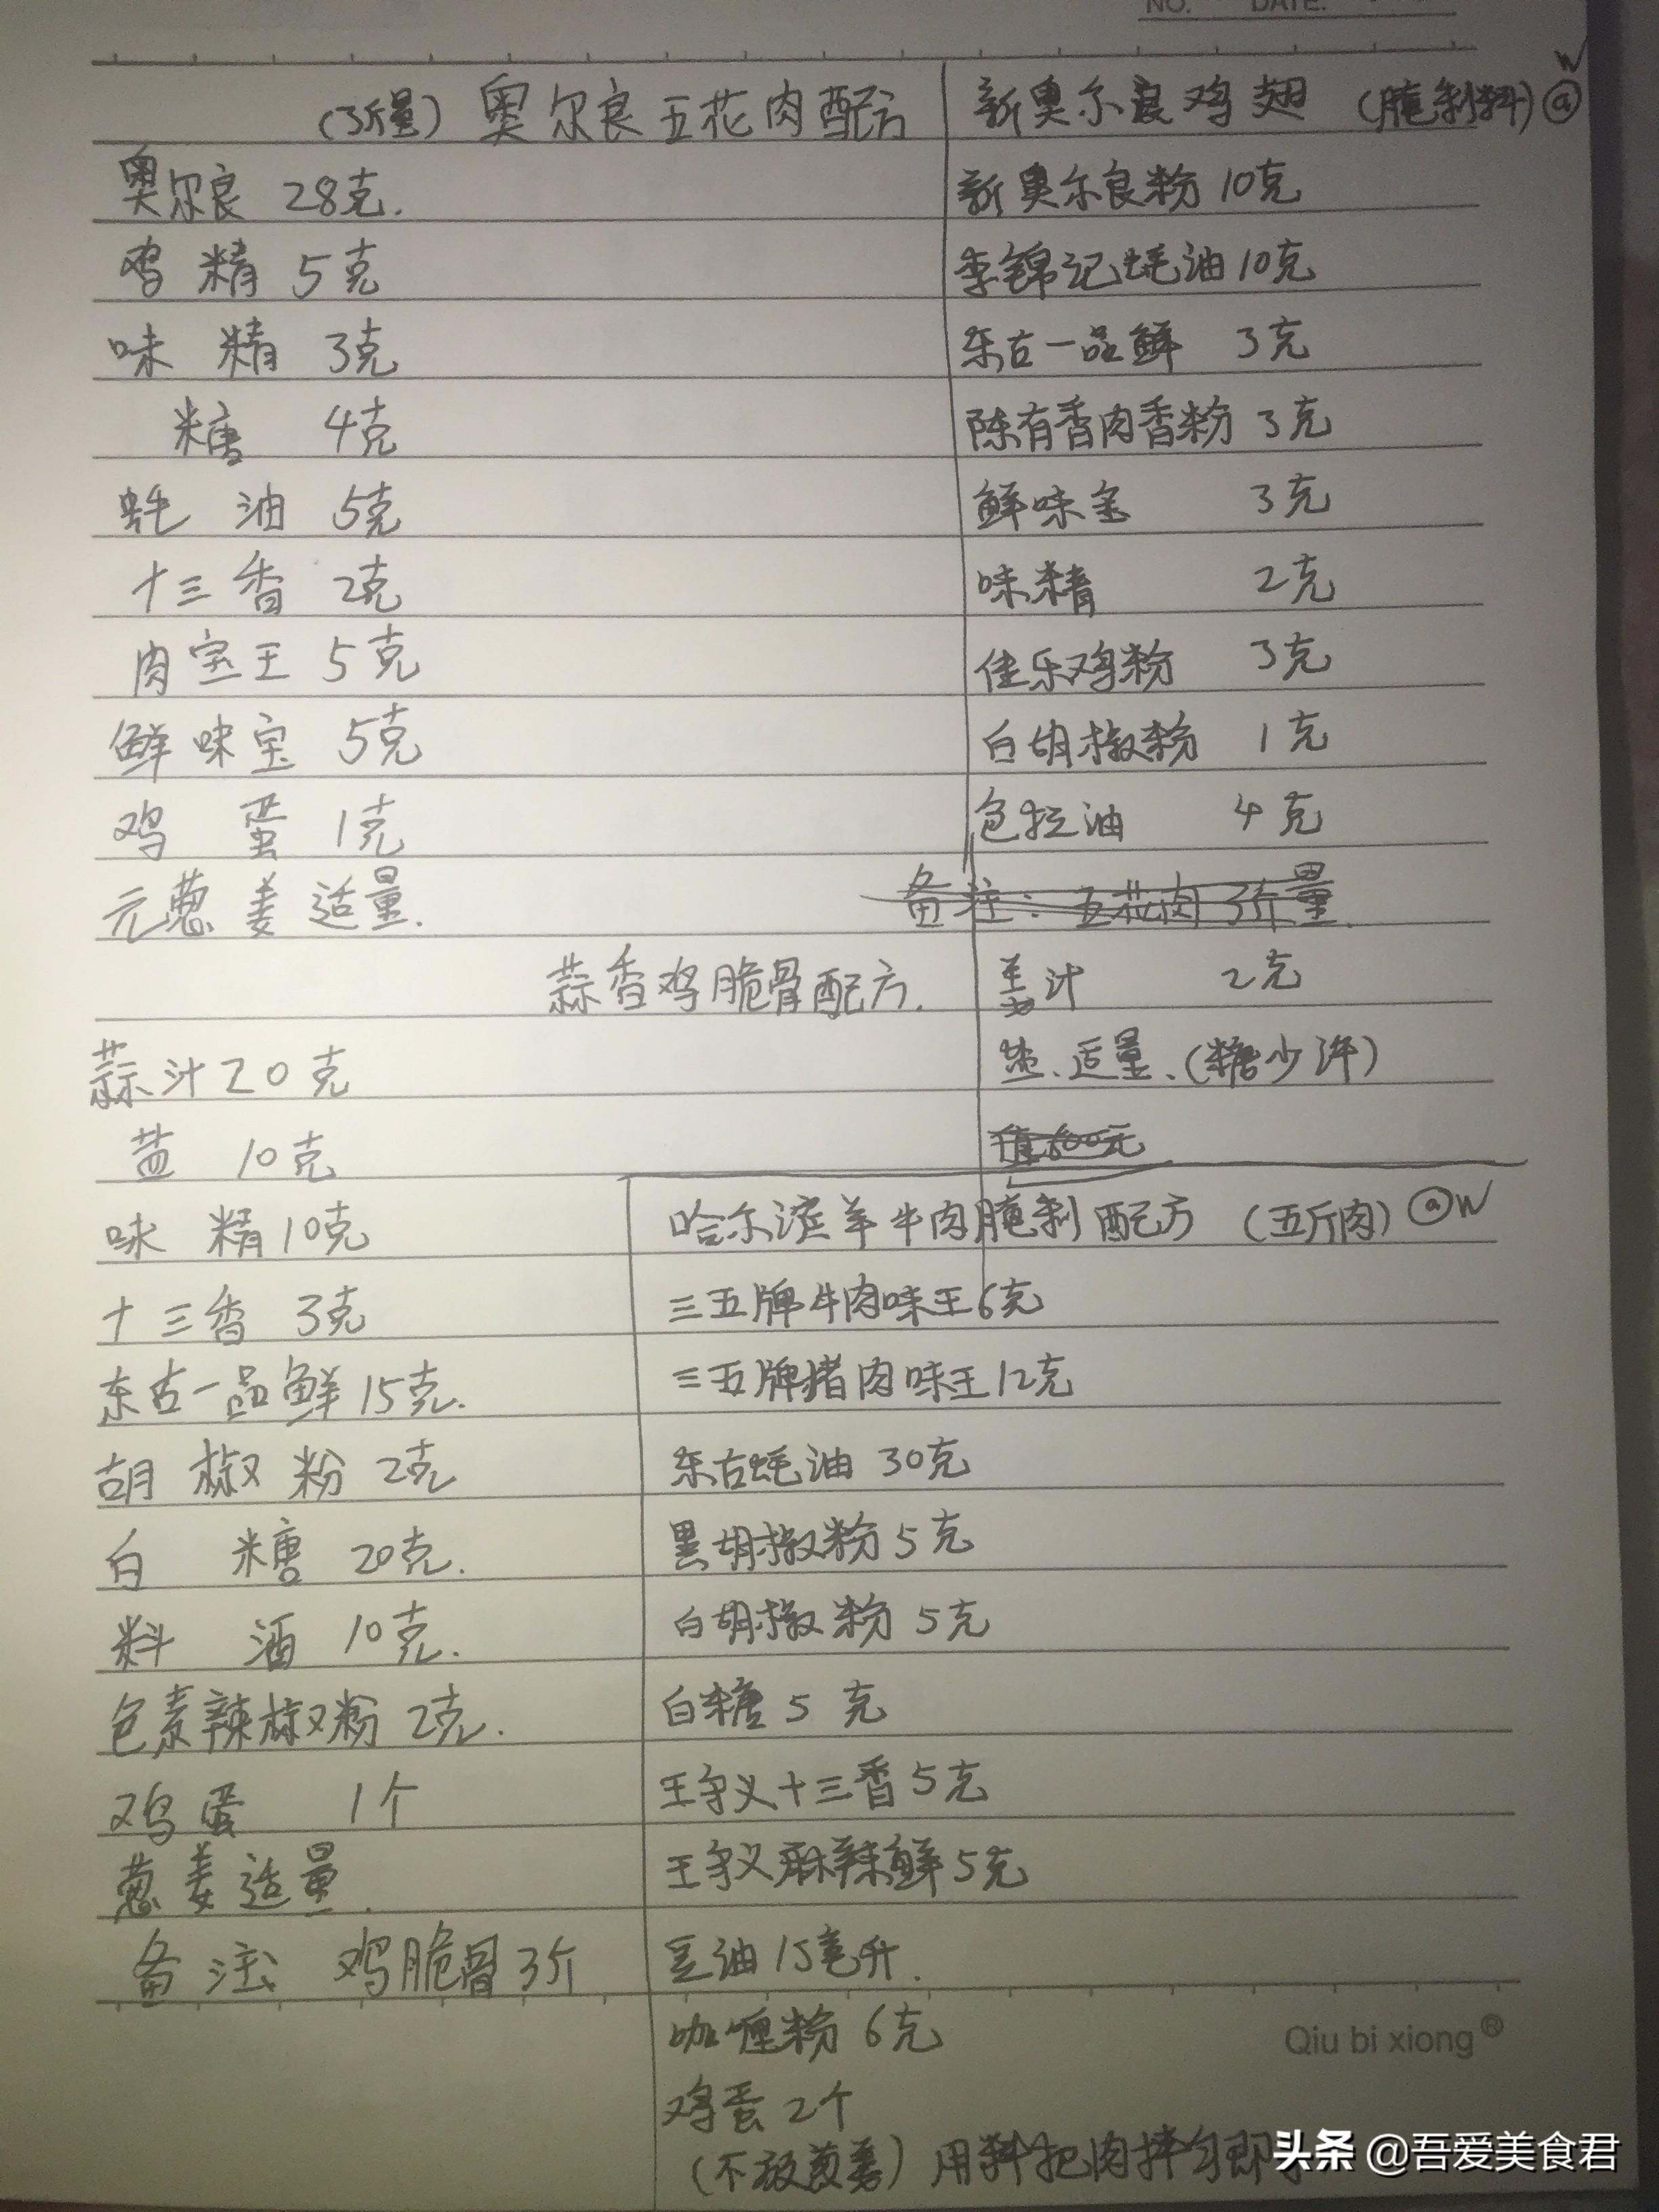 NO. DATE.
(3斤量) 奥尔良五花肉配方
奥尔良 28克.
鸡精 5克
味精 3克
糖 4克
蚝油 5克
十三香 2克
肉宝王 5克
鲜味宝 5克
鸡蛋 1克
元葱姜适量.
蒜香鸡脆骨配方.
蒜汁20克
盐 10克
味精10克
十三香 3克
东古一品鲜 15克.
胡椒粉 2克
白糖 20克.
料酒 10克.
色素辣椒粉 2克.
鸡蛋 1个
葱姜适量.
备注 鸡脆骨3斤
新奥尔良鸡翅 (腌制料) @
W
新奥尔良粉 10克
李锦记蚝油 10克
东古一品鲜 3克
陈有香肉香粉 3克
鲜味宝 3克
味精 2克
佳乐鸡粉 3克
白胡椒粉 1克
色拉油 4克
备注:五花肉3斤量.
姜汁 2克
盐、适量、(糖少许)
值600元
哈尔滨羊牛肉腌制配方 (五斤肉) @W
三五牌牛肉味王6克
三五牌猪肉味王12克
东古蚝油 30克
黑胡椒粉 5克
白胡椒粉 5克
白糖 5克
王守义十三香 5克
王守义麻辣鲜 5克
豆油 15毫升.
咖喱粉 6克
鸡蛋 2个
(不放葱姜) 用料把肉拌匀即
Qiu bi xiong®
头条 @吾爱美食君